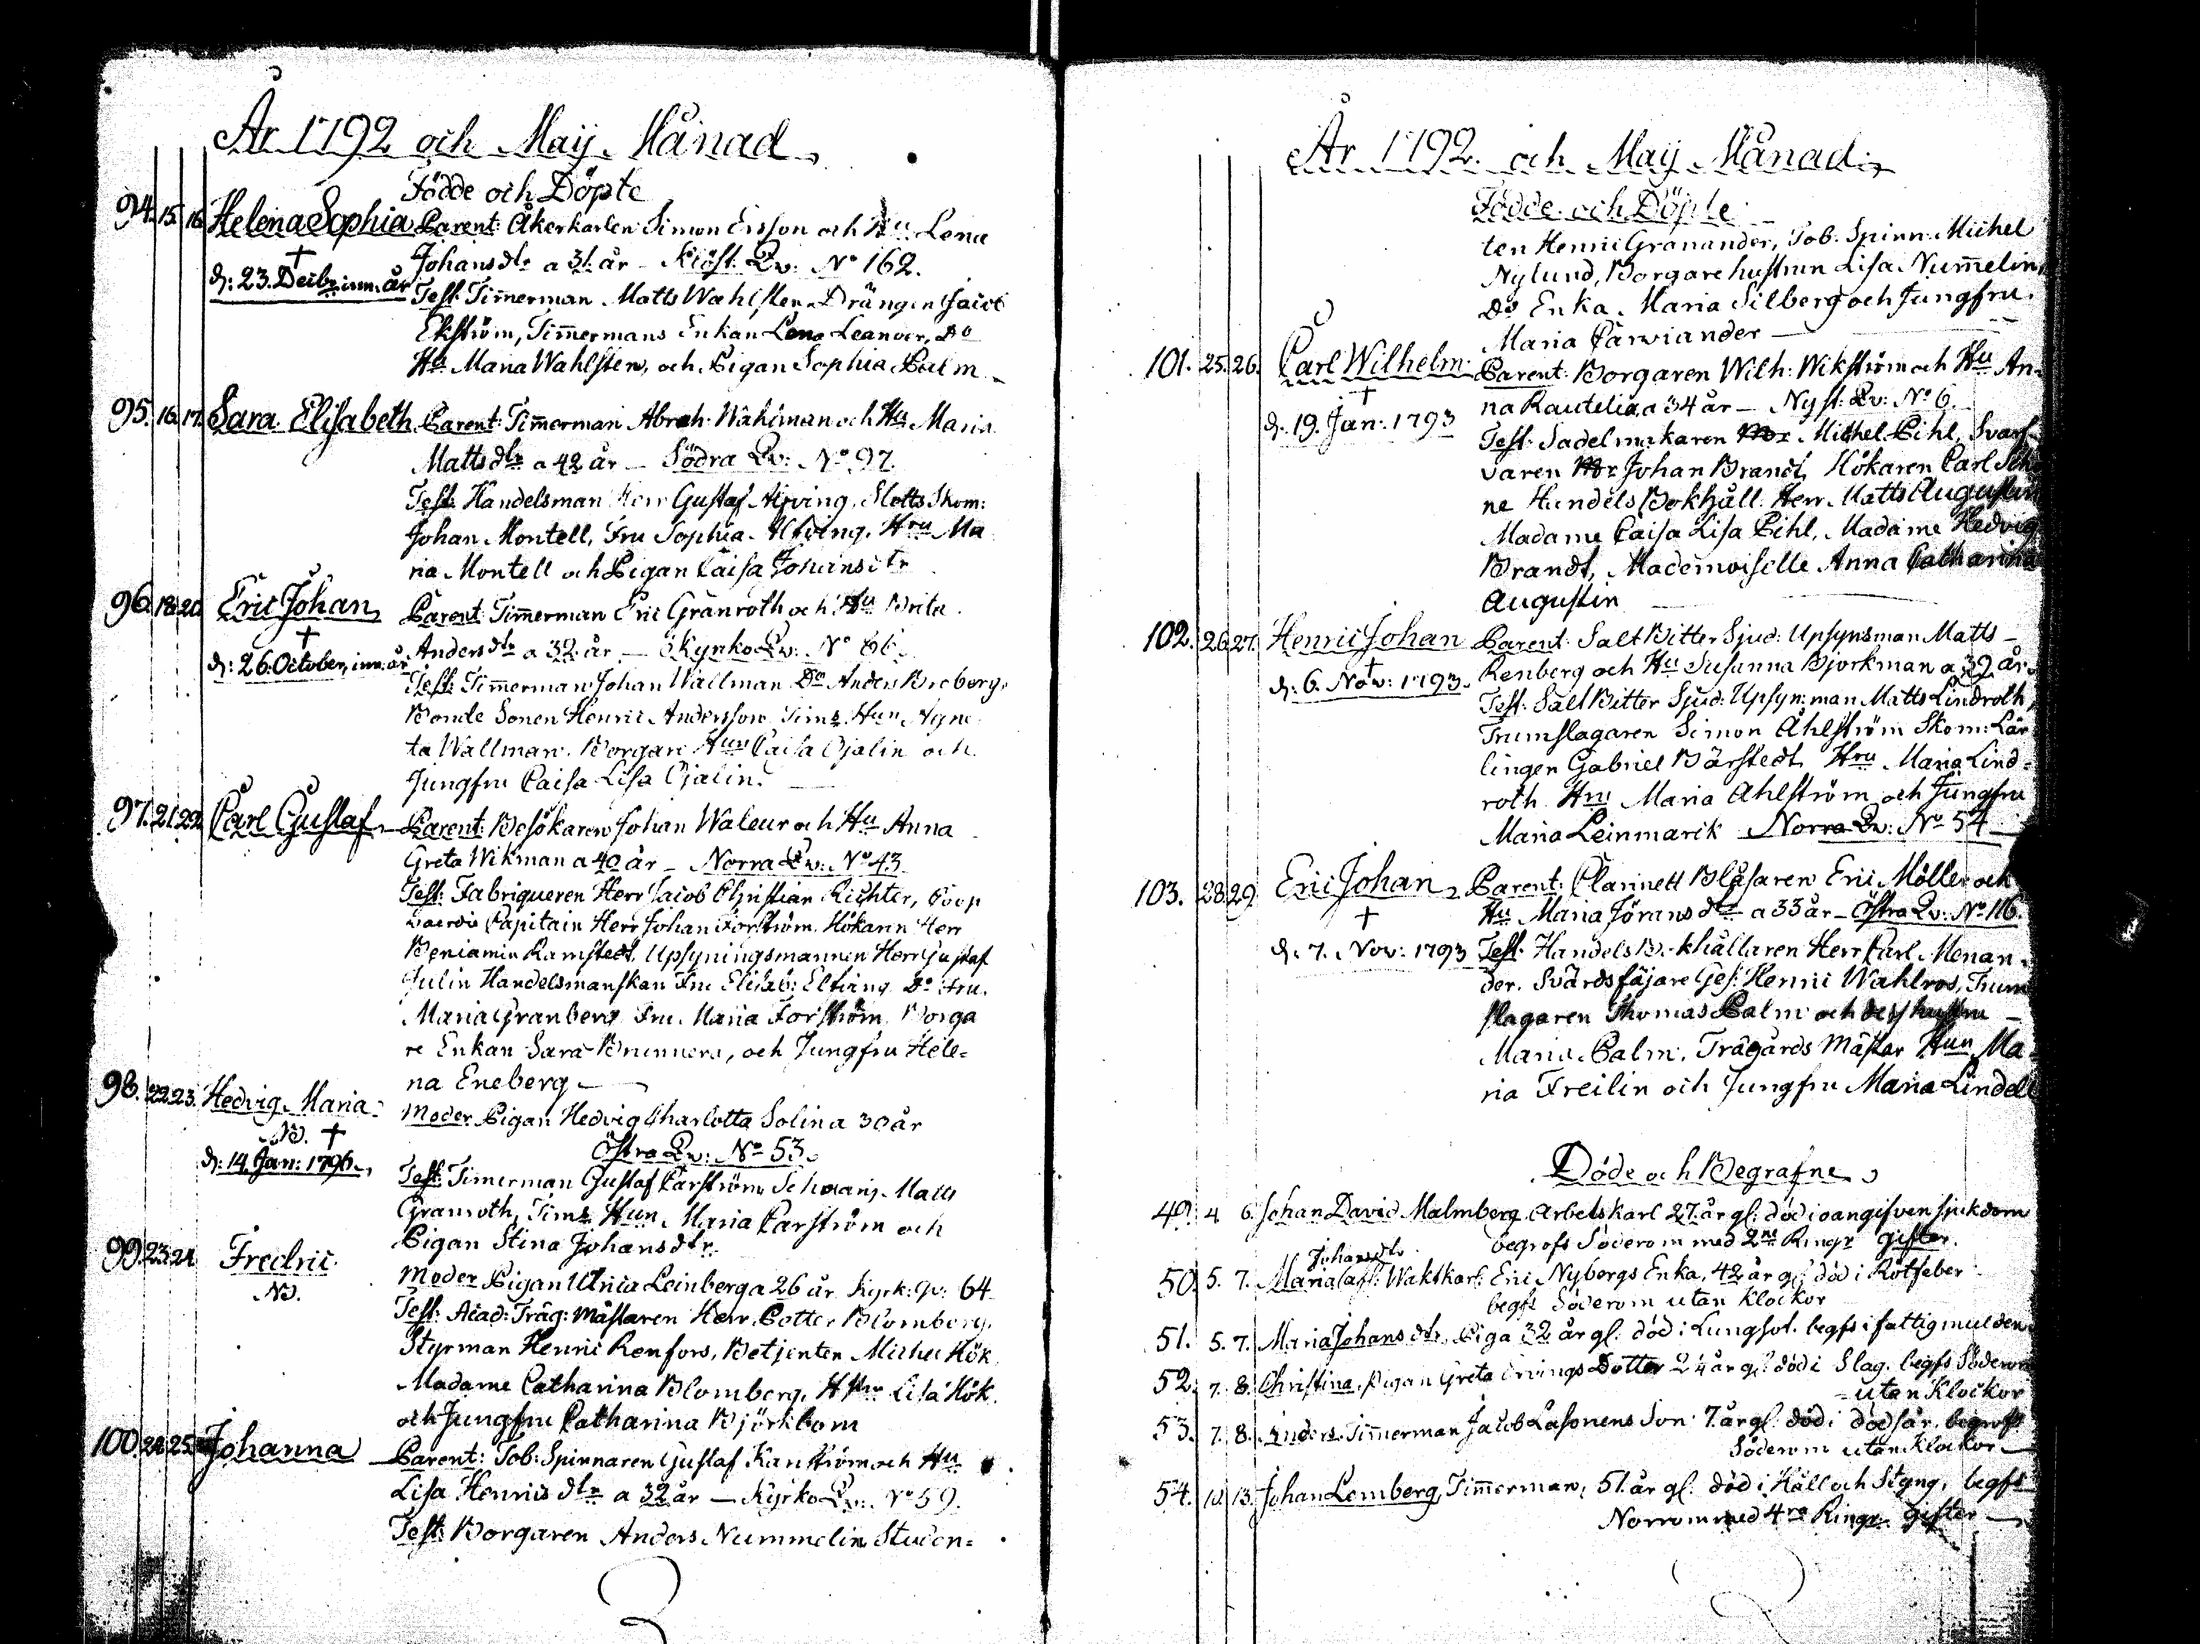 År 1792 och Maij Månad
Födde och Döpte
94. 15. 16. Helena Sophia Parent: Åkerkarlen Simon Ersson och Hu Lena
† Johansdtr a 31. år - Klöst. Qv: No 162.
d: 23. Decibr inn. år Test: Tim̄erman Matts Wahlsten Drängen Jacob
Ekström, Tim̄ermans Enkan Lena Leander, Do
Hu Maria Wahlsten, och Pigan Sophia Palm
95. 16. 17. Sara Elisabeth Parent: Tim̄erman Abrah: Wahlman och Hu Maria
Mattsdtr a 42 år - Södra Qv: No 97.
Test: Handelsman Herr Gustaf Alfving, Slotts Skom:
Johan Montell, Fru Sophia Alfving, Hru Ma
ria Montell och Pigan Caisa Johansdtr
96. 18. 20. Eric Johan Parent: Tim̄erman Eric Granroth och Hu Brita
† Andersdtr a 32 år - Kyrko Qv: No 66.
d: 26. October, inn: år Test: Tim̄erman Johan Wallman Do Anders Broberg,
Bonde Sonen Henric Andersson Tims Hun Agne
ta Wallman. Borgare Hun Caisa Ojalin och
Jungfru Caisa Lisa Ojalin.
97. 21. 22. Carl Gustaf Parent: Besökaren Johan Waleur och Hu Anna
Greta Wikman a 40 år - Norra Qv: No 43.
Test: Fabriqueren Herr Jacob Christian Richter, Coop
vaerdie Capitain Herr Johan Forström. Hökaren Herr
Beniamin Ramstedt, Upsyningsmannen Herr Gustaf
Julin Handelsmanskan Fru Elisab: Elfving Do Fru.
Maria Granberg Fru Maria Forström, Borga
re Enkan Sara Brunnera, och Jungfru Hele=
na Eneberg
98. 22. 23. Hedvig Maria Moder Pigan Hedvig Charlotta Solin a 30 år
No. † Östra Qv: No 53.
d: 14. Jan: 1796. Test: Timerman Gustaf Carström Matts
Granroth, Tims Hun Maria Carström och
Pigan Stina Johansdtr
99. 23. 24. Fredric Moder Pigan Ulrica Leinberg a 26 år Kyrk: Qv: 64
No. Test: Acad: Träg: Mästaren Herr Petter Blomberg,
Styrman Henric Renfors, Betjenten Michel Hök
Madame Catharina Blomberg, Hru Lisa Hök
och Jungfru Catharina Björkbom
100. 24. 25. Johanna Parent: Tob: Spinnaren Gustaf Kanström och Hu
Lisa Henricsdtr a 32 år - Kyrko Qv: No 59.
Test: Borgaren Anders Nummelin Studen=
År 1792. och Maij Månad
Födde och Döpte
ten Henric Granander, Tob: Spinn: Michel
Nylund, Borgare hustrun Lisa Num̄elin,
Do Enka Maria Silberg och Jungfru
Maria Carviander
101. 25. 26. Carl Wilhelm Parent: Borgaren Wilh: Wikström och Hu An-
† na Rautelia a 34 år - Ny st: Qv: No 6.
d: 19. Jan: 1793 Test: Sadelmakaren Michel Pihl, Svarf-
varen Johan Brandt, Hökaren Carl
ne Handels Bokhåll. Herr Matts Augustin
Madame Caisa Lisa Pihl, Madame Hedvig
Brandt, Mademoiselle Anna Catharina
Augustin
102. 26. 27. Henric Johan Parent: Salt Bitter Sjud: Upsynsman Matts
† Renberg och Hu Susanna Bjorkman a 39 år
d: 6. Nov: 1793. Test: Salt Bitter Sjud: Upsyn: man Matts Lindroth,
Trumslagaren Simon Åhlström Skom: Lär
lingen Gabriel Bärstedt, Hru Maria Lind=
roth Hru Maria Ahlström och Jungfru
Maria Leinmarck Norra Qv: No 54
103. 28. 29. Eric Johan Parent: Clarinett Blåsaren Eric Möller och
† Hu Maria Jöransdtr a 33 år - Östra Qv: No 116.
d: 7. Nov: 1793 Test: Handels Bokhållaren Herr Carl Menan-
der. Svärdsfäjare Ges: Henric Wahlros, Trum
slagaren Thomas Palm och des hustru
Maria Palm. Trägårds Mästar Hun Ma=
ria Freilin och Jungfru Maria Lindell
Döde och Begrafne
49. 4 6. Johan David Malmberg Arbetskarl 27. år gl: död i oangifven sjukdom
begrofs Söderom med 2ne Ringr gifter.
Johansdtr
50. 5. 7. Maria Waktkarl Eric Nybergs Enka, 42 år gl död i Rötfeber
begfs Söderom utan Klockor
51. 5. 7. Maria Johansdtr, Piga 32 år gl: död i Lungsot. begfs i fattigmulden
52. 7. 8. Christina, Pigan Greta Ervings Dotter 2¼ år gl död i Slag. begfs Söderom
utan Klockor
53. 7. 8. Anders. Tim̄erman Jacob Lasonens Son 7. år gl: död i begrofs
Söderom utan Klockor
54. 10. 13. Johan Lemberg, Tim̄erman, 51. år gl: död i Håll och Styng, begfs
Norrom med 4ra Ringr gifter